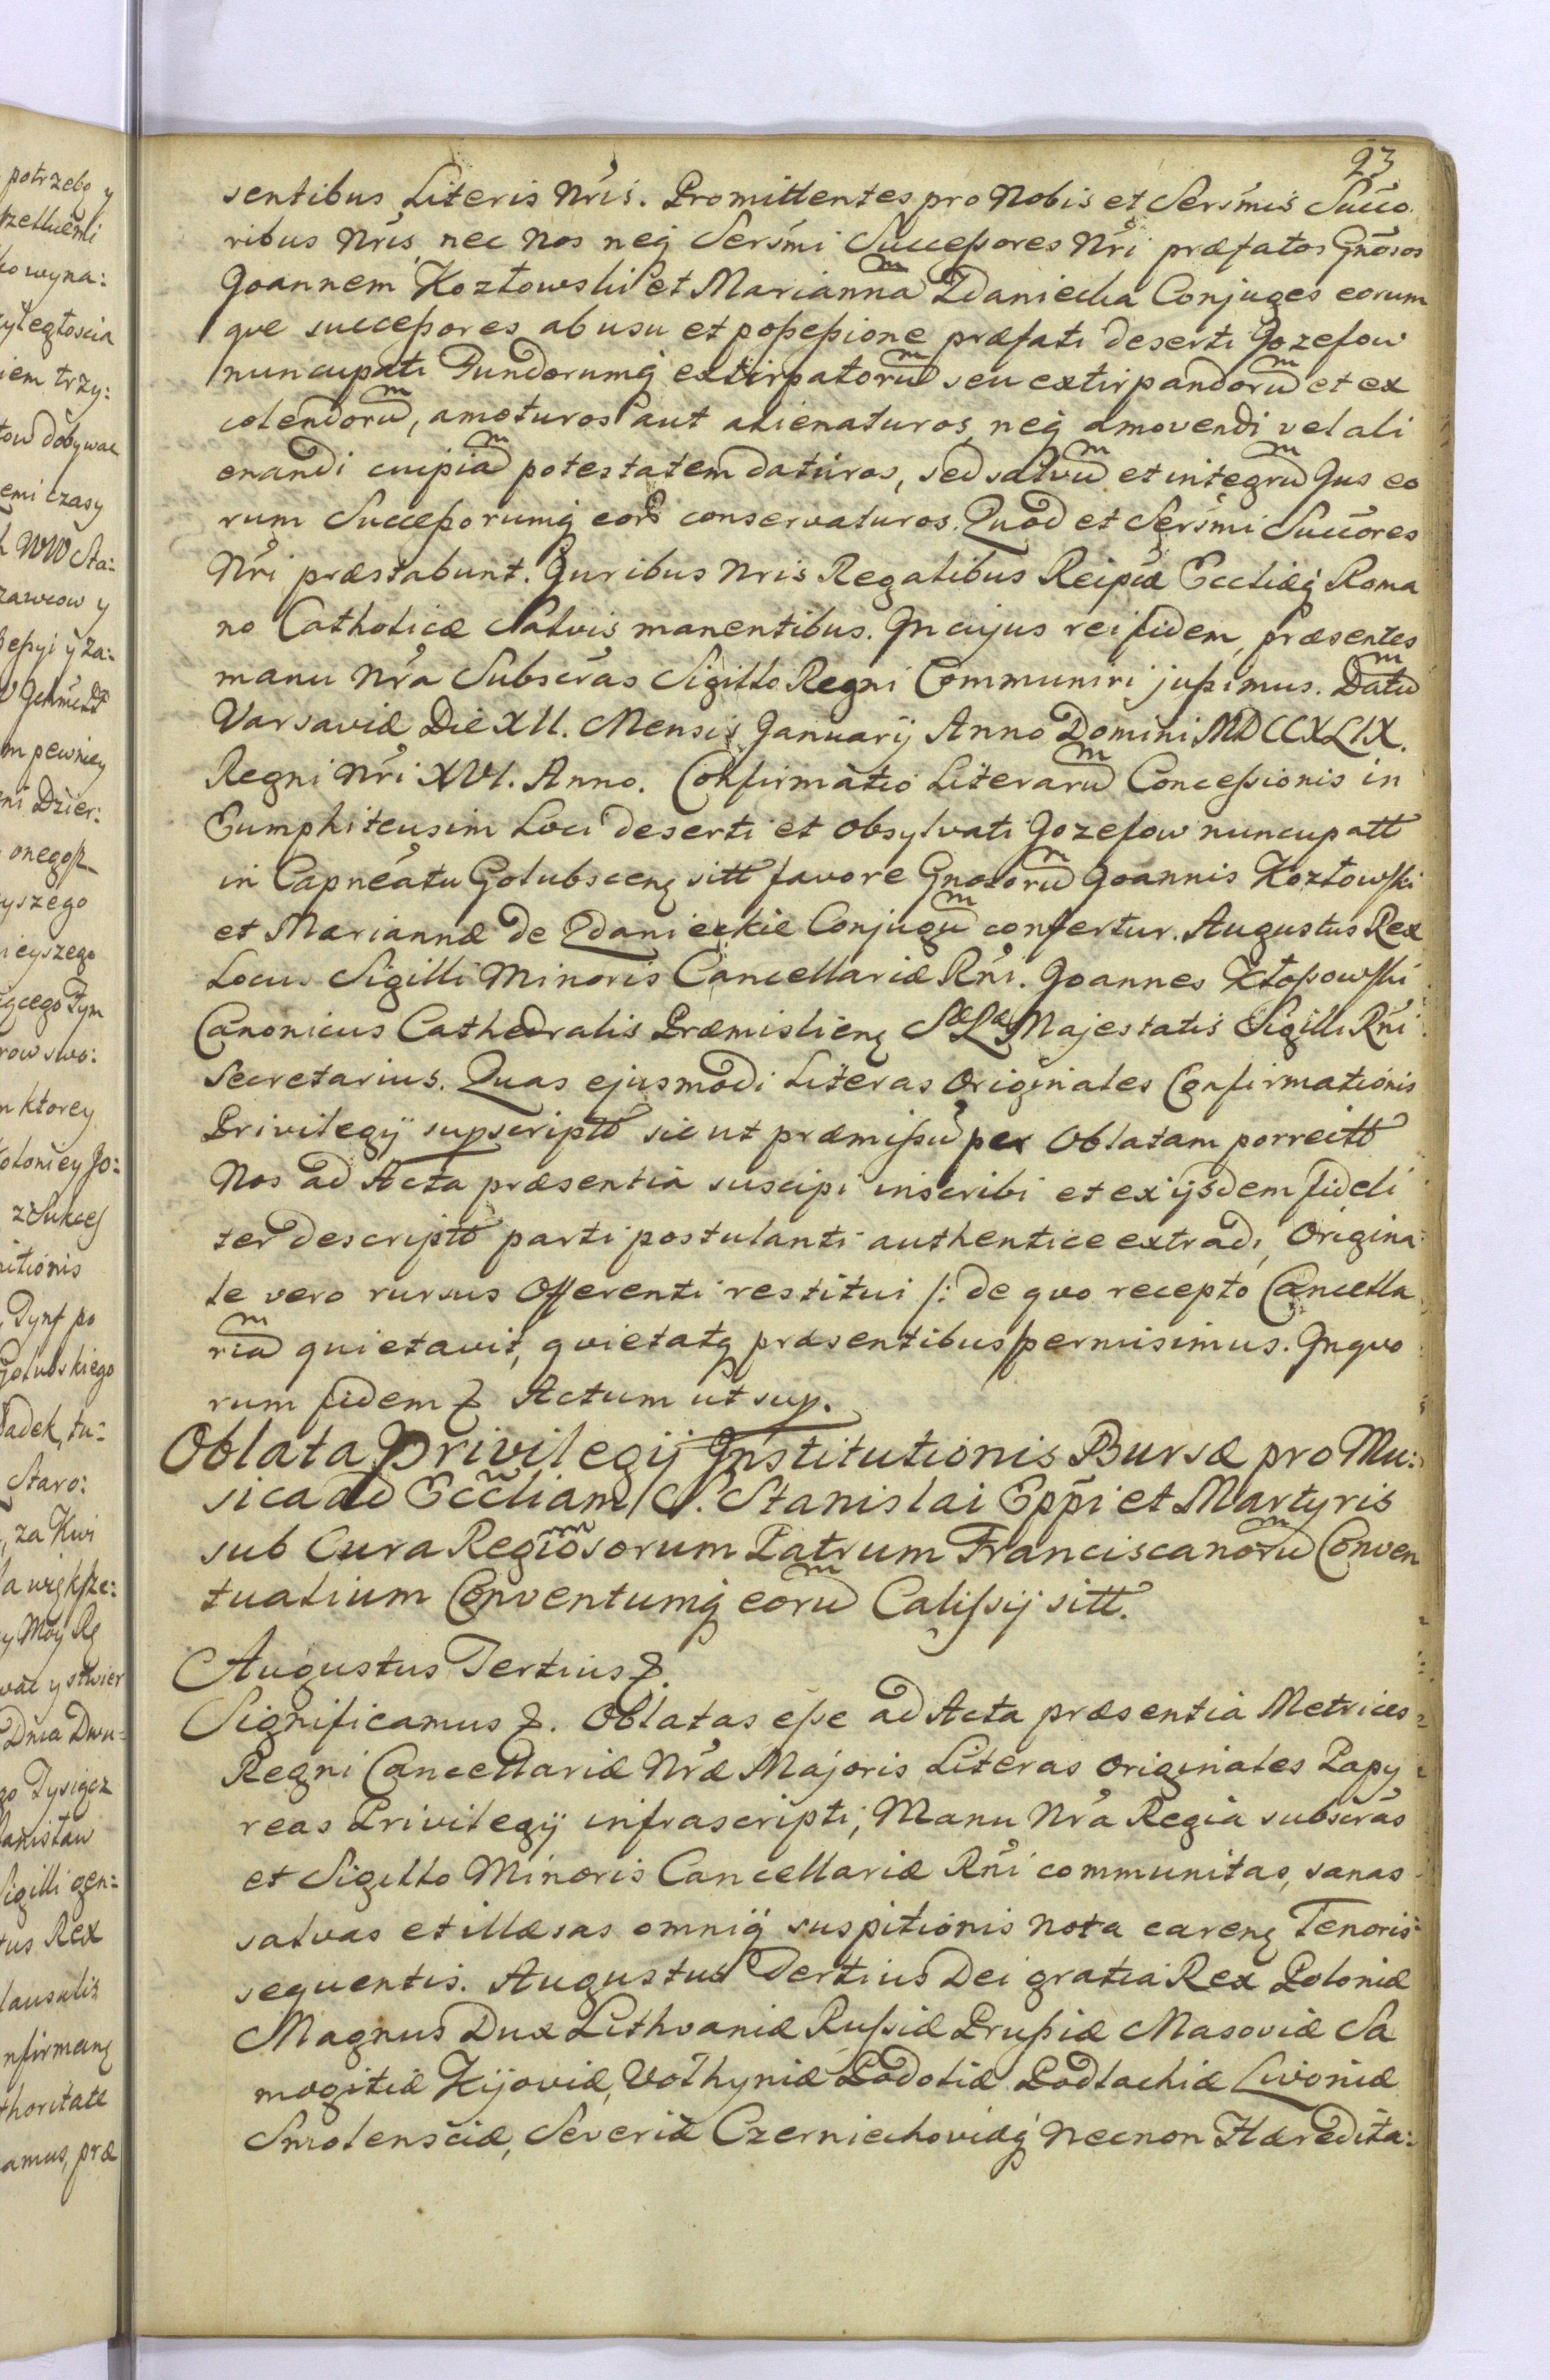 93
sentibus Literis Nris. Promittentes pro Nobis et Sersmis Succo
ribus Nris, nec Nos neq Sersmi Successores Nri præfatos Gnosos
Joannem Kozłowski et Mariannam Zdaniecka Conjuges eorum
que successores ab usu et possessione præfati deserti Jozefow
nuncupati Fundorumq extirpatorum seu extirpandorum et ex
colendorum, amoturos aut alienaturos, neq amovendi vel ali
enandi cuipiam potestatem daturos, sed salvum et integrum Jus eo
rum Successorumq eor conservaturos. Quod et Sersmi Succores
Nri præstabunt. Juribus Nris Regalibus Reipcæ Eccliæq Roma
no Catholicæ Salvis manentibus. In cujus rei fidem, præsentes
manu Nra Subscras Sigillo Regni Communiri jussimus. Datum
Varsaviæ Die XII. Mensis Januarij Anno Domini MDCCXLIX.
Regni Nri XVI. Anno. Confirmatio Literarum Concessionis in
Eumphiteusim Loci deserti et obsylvati Jozefow nuncupatt
in Capneatu Golubsceng sitt favore Gnosorum Joannis Kozłowski
et Mariannæ de Zdanieckie Conjugum confertur. Augustus Rex
Locus Sigilli Minoris Cancellariæ Rni. Joannes Kłossowski
Canonicus Cathedralis Præmislieng SæRæ Majestatis Sigilli Rni
Secretarius. Quas ejusmodi Literas Originales Confirmationis
Privilegij supscriptt sicut præmissum per Oblatam porrectt
Nos ad Acta præsentia suscipi inscribi et ex ijsdem fideli
ter descriptt parti postulanti authentice extradi, Origina
le vero rursus Offerenti restitui /: de quo recepto Cancella
riam quietavit, quietatq præsentibus / permisimus. In quo
rum fidem & Actum ut sup.
Oblata Privilegij Institutionis Bursæ pro Mu:
sica ad Eccliam S. Stanislai Eppi et Martyris
sub Cura Regiosorum Patrum Franciscanorum Conven
tualium Conventumq eorum Calissij sitt.
Augustus Tertius &.
Significamus &. Oblatas esse ad Acta præsentia Metrices
Regni Cancellariæ Nræ Majoris Literas Originales Papy
reas Privilegij infrascripti, Manu Nra Regia subscras
et Sigillo Minoris Cancellariæ Rni communitas, sanas
salvas et illæsas omniq suspitionis nota careng Tenoris
sequentis. Augustus Tertius Dei gratia Rex Poloniæ
Magnus Dux Lithvaniæ Russiæ Prussiæ Masoviæ Sa
mogitiæ Kijoviæ, Volhyniæ Podoliæ Podlachiæ Livoniæ
Smolensciæ, Severiæ Czerniechoviæq Necnon Hæredita: